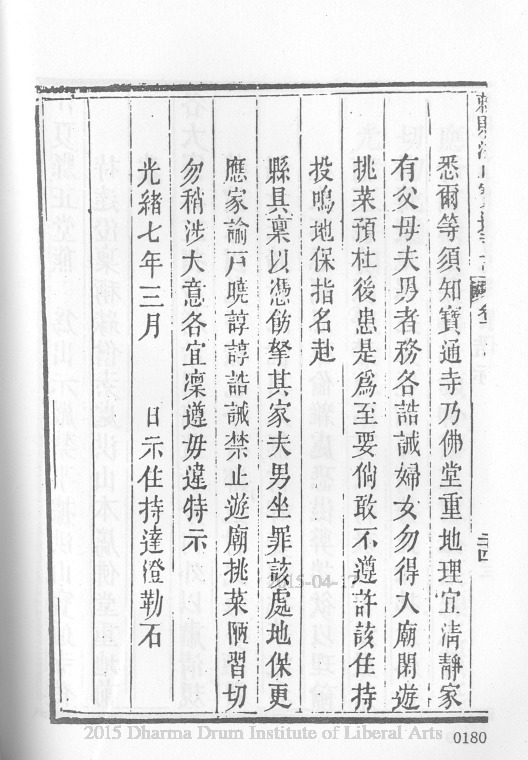 悉爾等須知寶通寺乃佛堂重地理宜清靜家
有父母夫男者務各誥誡婦女勿得入廟閑遊
挑菜預杜後患是爲至要倘敢不遵許該住持
投鳴地保指名赴
縣具稟以憑飭拏其家夫男坐罪該處地保更
應家諭戸曉諄諄誥誡禁止遊廟挑菜陋習切
勿稍涉大意各宜凜遵毋違特示
光緒七年三月　日示住持達澄勒石
2015 Dharma Drum Institute of Liberal Arts
0180